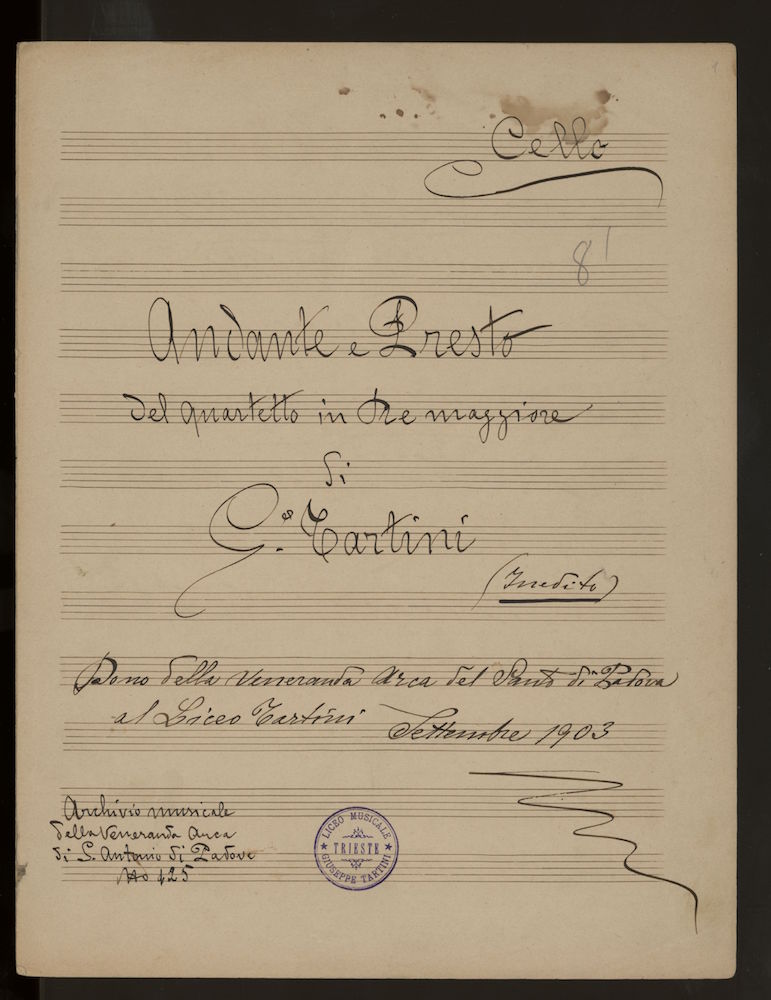 Cello
8 1
Andante e Presto
del quartetto in Re maggiore
di
G.e Tartini
(Inedito)
Dono della Veneranda Arca del Santo di Padova
al Liceo Tartini Settembre 1903
Archivio musicale
della Veneranda Arca
di S. Antonio di Padova
No 425
LICEO MUSICALE
TRIESTE
GIUSEPPE TARTINI